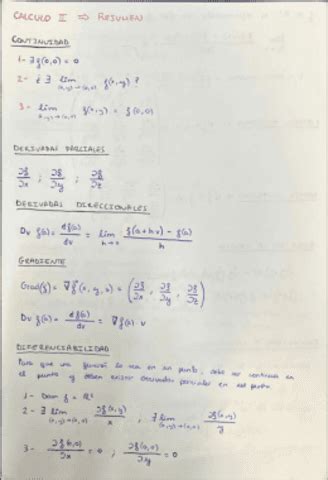 CALCULO II ⇒ RESUMEN
CONTINUIDAD
1- ∃ f(0,0) = 0
2- ¿ ∃ lim (x,y)→(0,0) f(x,y) ?
3- lim (x,y)→(0,0) f(x,y) = f(0,0)
DERIVADAS PARCIALES
∂f/∂x ; ∂f/∂y ; ∂f/∂z
DERIVADAS DIRECCIONALES
Dv f(a) = df(a)/dv = lim h→0 f(a+hv) - f(a) / h
GRADIENTE
Grad(f) = ∇f (x, y, z) = (∂f/∂x, ∂f/∂y, ∂f/∂z)
Dv f(a) = df(a)/dv = ∇f(a) · v
DIFERENCIABILIDAD
Para que una función lo sea en un punto, debe ser continua en
el punto y deben existir derivadas parciales en del punto.
1- Dom f = ℝ²
2- ∃ lim (x,y)→(0,0) ∂f(x,y)/x ; ∃ lim (x,y)→(0,0) ∂f(x,y)/y
3- ∂f(0,0)/∂x = 0 ; ∂f(0,0)/∂y = 0